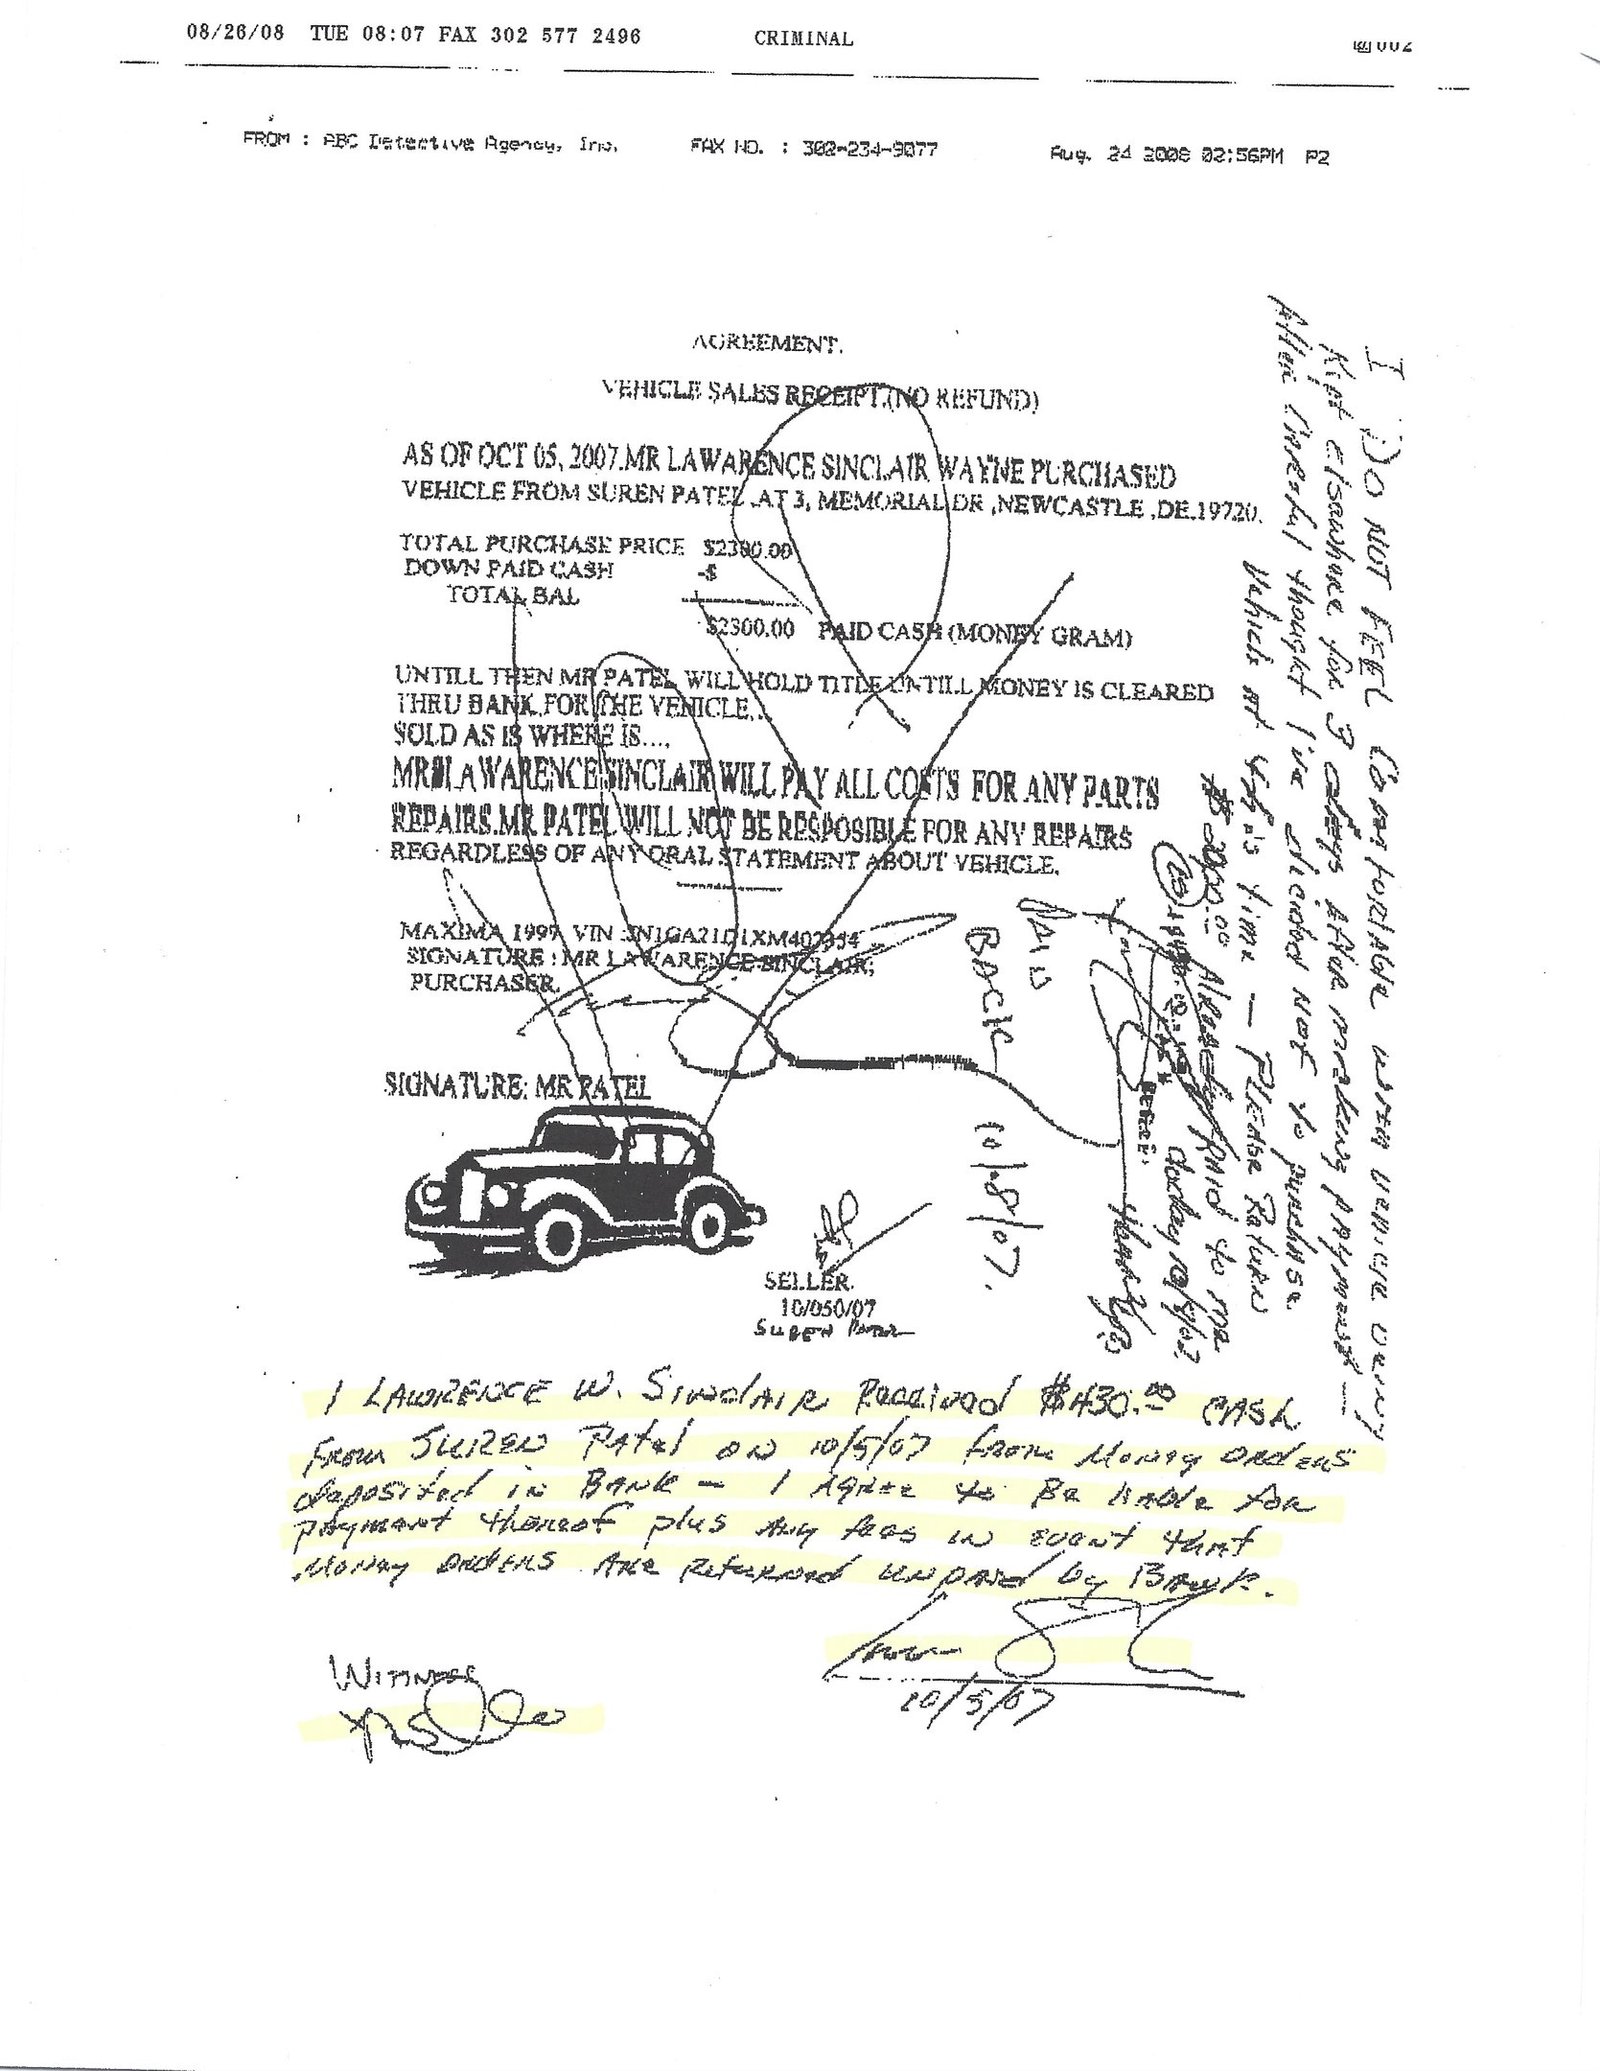 08/26/08 TUE 08:07 FAX 302 577 2496 CRIMINAL 002
FROM : ABC Detective Agency, Inc. FAX NO. : 302-234-9077 Aug. 24 2008 02:56PM P2
AGREEMENT.
VEHICLE SALES RECEIPT.(NO REFUND)
AS OF OCT 05, 2007.MR LAWARENCE SINCLAIR WAYNE PURCHASED
VEHICLE FROM SUREN PATEL .AT 3, MEMORIAL DR ,NEWCASTLE ,DE.19720.
TOTAL PURCHASE PRICE $2300.00
DOWN PAID CASH -$
TOTAL BAL
$2300.00 PAID CASH (MONEY GRAM)
UNTILL THEN MR PATEL WILL HOLD TITLE UNTILL MONEY IS CLEARED
THRU BANK.FOR THE VEHICLE..
SOLD AS IS WHERE IS....
LAWARENCE SINCLAIR WILL PAY ALL COSTS FOR ANY PARTS
REPAIRS.MR PATEL WILL NOT BE RESPOSIBLE FOR ANY REPAIRS
REGARDLESS OF ANY ORAL STATEMENT ABOUT VEHICLE.
MAXIMA 1999 VIN :
SIGNATURE : MR LAWARENCE SINCLAIR;
PURCHASER.
SIGNATURE: MR PATEL
SELLER.
10/050/07
SUREN PATEL
I DO NOT FEEL Comfortable with vehicle being
Kept elsewhere for 3 days after making payment —
After careful thought I've decided not to purchase
Vehicle at this time — PLEASE Return
$2000.00 Already paid to me
PAID
BACK 10/8/07.
I LAWRENCE W. SINCLAIR Received $430.00 CASH
From SUREN Patel on 10/5/07 from Money Orders
deposited in BANK — I Agree to Be liable for
payment thereof plus any fees in event that
Money orders Are returned unpaid by BANK.
10/5/07
WITNESS